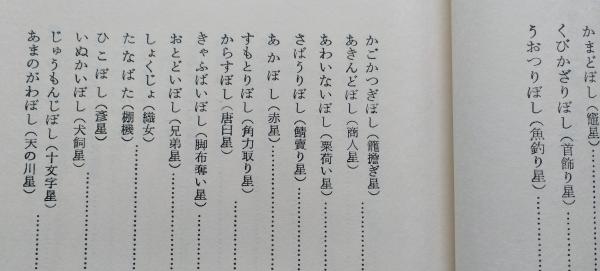 かまどぼし（竈星）
くびかざりぼし（首飾り星）
うおつりぼし（魚釣り星）
かごかつぎぼし（籠擔ぎ星）
あきんどぼし（商人星）
あわいないぼし（粟荷い星）
さばうりぼし（鯖賣り星）
あかぼし（赤星）
すもとりぼし（角力取り星）
からすぼし（唐臼星）
きゃふばいぼし（脚布奪い星）
おとどいぼし（兄弟星）
しょくじょ（織女）
たなばた（棚機）
ひこぼし（彦星）
いぬかいぼし（犬飼星）
じゅうもんじぼし（十文字星）
あまのがわぼし（天の川星）